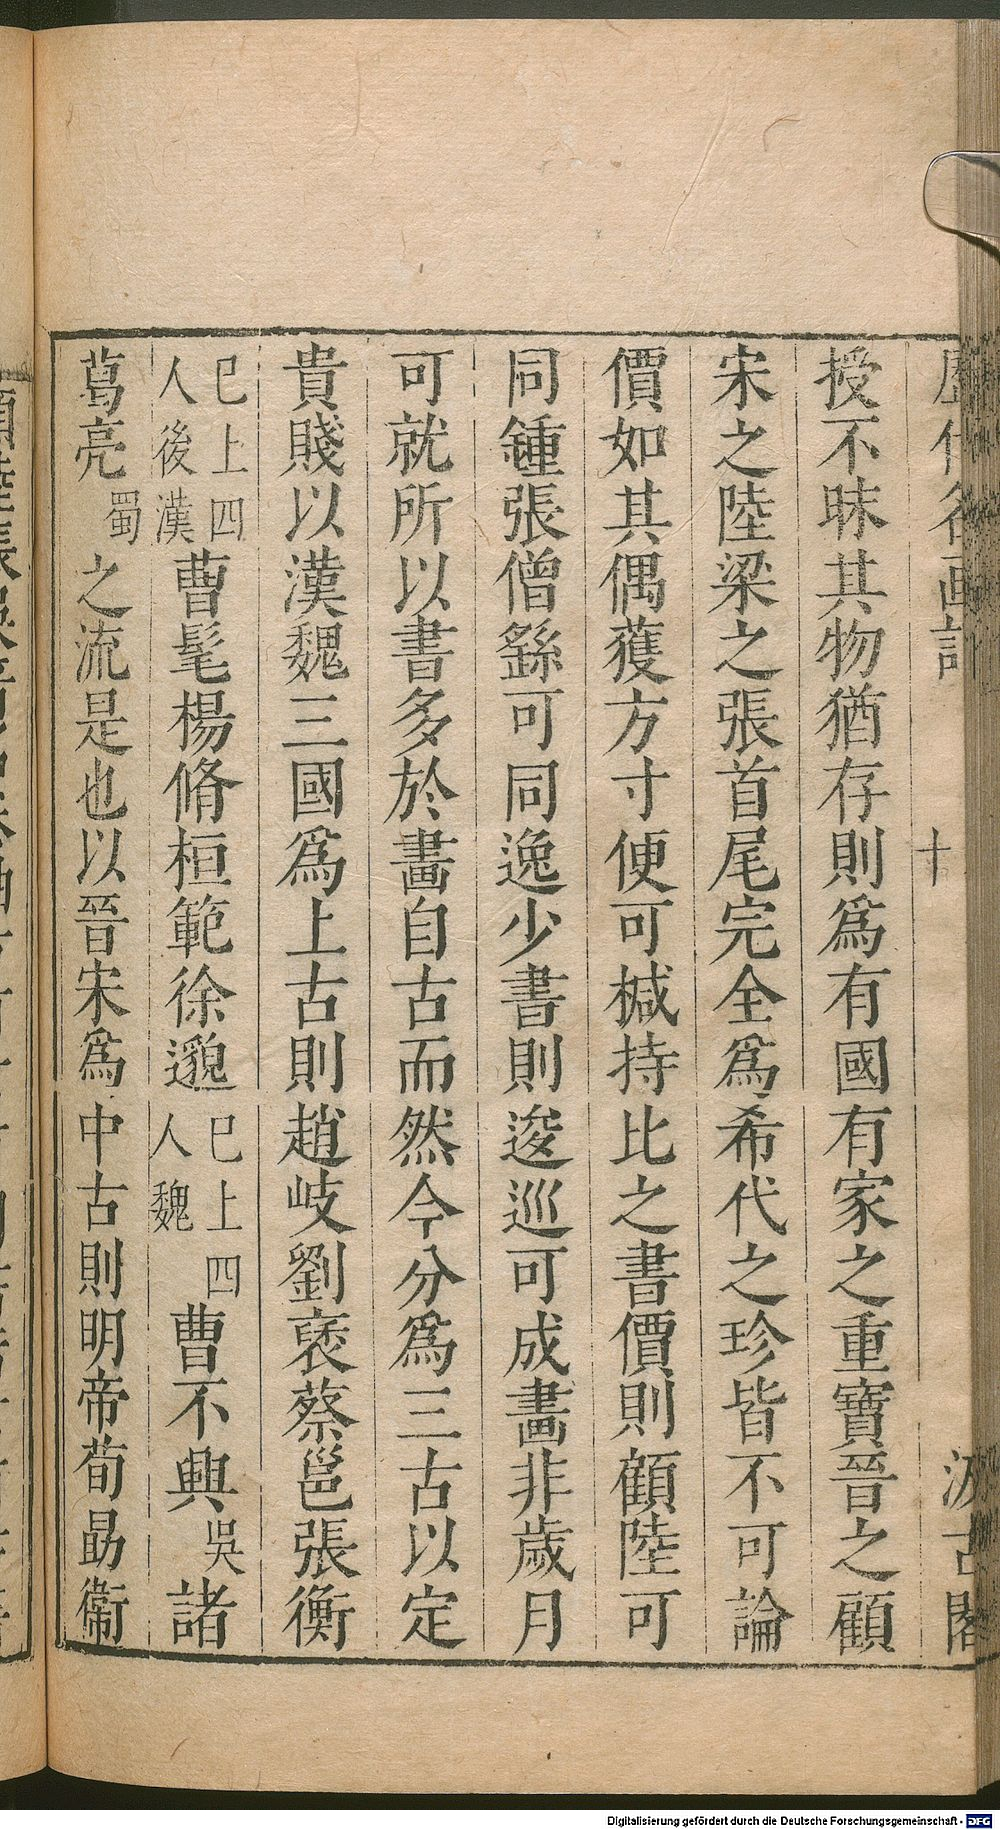 歷代名画記
十
汲古閣
授不昧其物猶存則爲有國有家之重寶晉之顧
宋之陸梁之張首尾完全爲希代之珍皆不可論
價如其偶獲方寸便可椷持比之書價則顧陸可
同鍾張僧繇可同逸少書則逡巡可成畫非歲月
可就所以書多於畫自古而然今分爲三古以定
貴賤以漢魏三國爲上古則趙岐劉褒蔡邕張衡
巳上四人後漢曹髦楊脩桓範徐邈巳上四人魏曹不興吳諸
葛亮蜀之流是也以晉宋爲中古則明帝荀勗衞
Digitalisierung gefördert durch die Deutsche Forschungsgemeinschaft - DFG